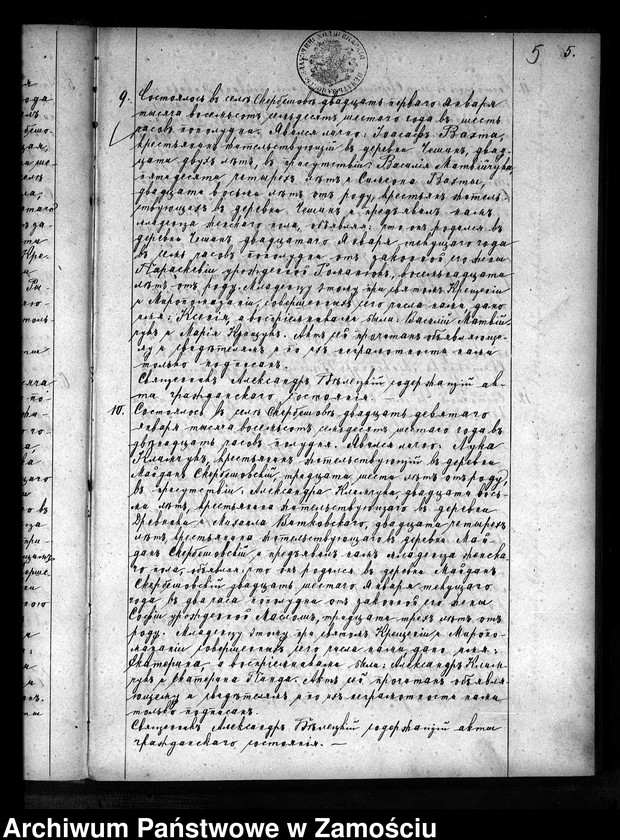 5 5.
9. Состоялось въ селѣ Скербешовъ двадцать перваго Января
тысяча восемьсотъ семьдесятъ шестаго года въ шесть
часовъ пополудни. Явился лично: Іоасафъ Вахта,
крестьянинъ жительствующій въ деревни Чешинъ, двад-
цати двухъ лѣтъ, въ присутствіи: Василія Матвійчука
пятидесяти четырехъ лѣтъ и Симеона Вахты,
двадцати восьми лѣтъ отъ роду, крестьянъ житель-
ствующихъ въ деревни Чешинъ и предъявилъ намъ
младенца женскаго пола, объявляя: что онъ родился въ
деревни Чешинъ двадцатаго Января текущаго года
въ семь часовъ пополудни отъ законной его жены
Параскевіи урожденной восемьнадцати
лѣтъ отъ роду. Младенцу этому при святомъ Крещеніи
и Миропомазаніи, совершенныхъ сего числа нами дано
имя: Ксенія, а воспріемниками были: Василій Матвій-
чукъ и Марія Крощукъ. Актъ сей прочитанъ объявляюще-
му и свидѣтелямъ и по ихъ неграмотности нами
только подписанъ.
Священникъ Александръ Бѣлецкій содержащій ак-
та гражданскаго состоянія.
10. Состоялось въ селѣ Скербешовъ двадцать девятаго
января тысяча восемьсотъ семьдесятъ шестаго года въ
двѣнадцать часовъ полудня. Явился лично: Лука
Климчукъ, крестьянинъ жительствующій въ деревни
Майданъ Скербешовскій, тридцати шести лѣтъ отъ роду,
въ присутствіи: Александра Климчука двадцати вось-
ми лѣтъ, крестьянина жительствующаго въ деревни
и Михаила Витковскаго, двадцати четырехъ
лѣтъ, крестьянина жительствующаго въ деревни Май-
данъ Скербешовскій и предъявилъ намъ младенца женска-
го пола, объявляя: что онъ родился въ деревни Майданъ
Скербешовскій двадцать шестаго Января текущаго
года въ два часа пополудни отъ законной его жены
Софіи урожденной тридцати трехъ лѣтъ отъ
роду. Младенцу этому при святомъ Крещеніи и Миропо-
мазаніи совершенныхъ сего числа нами дано имя:
Екатерина, а воспріемниками были: Александръ Клим-
чукъ и Екатерина Панда. Актъ сей прочитанъ объявля-
ющему и свидѣтелямъ и по ихъ неграмотности нами
только подписанъ.
Священникъ Александръ Бѣлецкій содержащій акты
гражданскаго состоянія. —
Archiwum Państwowe w Zamościu